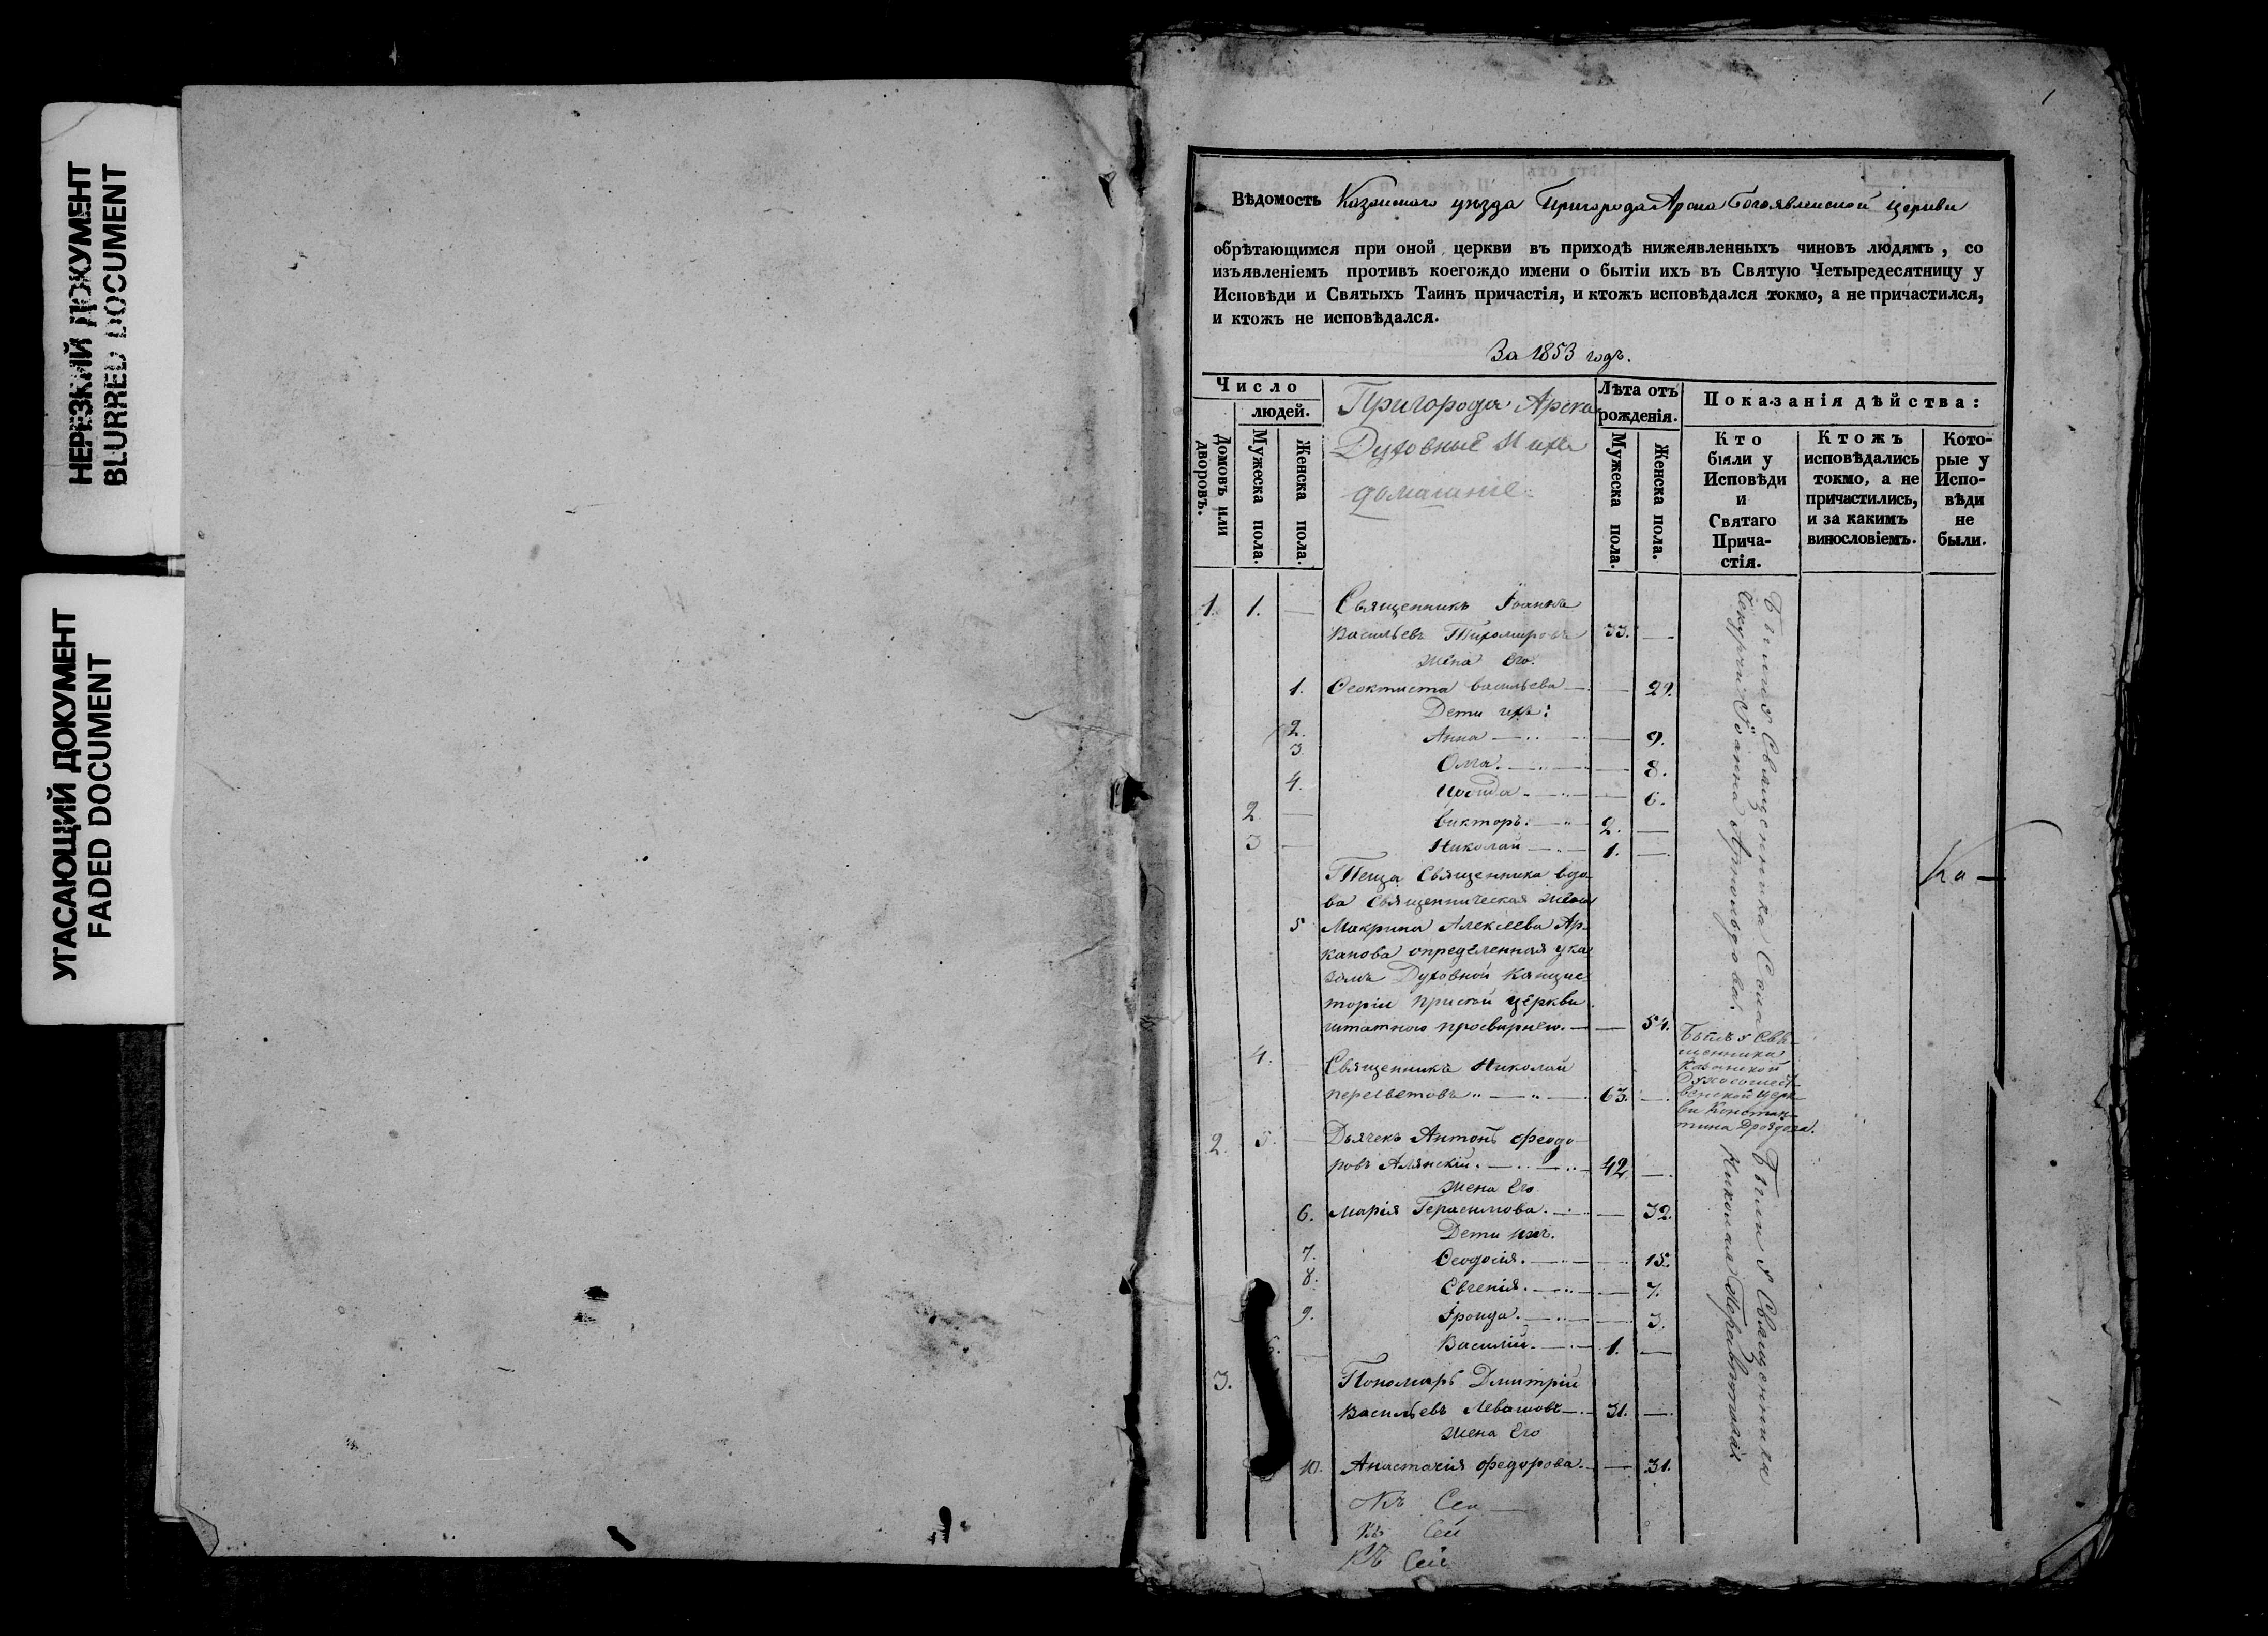 НЕРЕЗКИЙ ДОКУМЕНТ
BLURRED DOCUMENT
УГАСАЮЩИЙ ДОКУМЕНТ
FADED DOCUMENT
1
Вѣдомость Казанскаго уѣзда Пригорода Арска Богоявленской церкви
обрѣтающимся при оной церкви въ приходѣ нижеявленныхъ чиновъ людямъ, со
изъявленіемъ противъ коегождо имени о бытіи ихъ въ Святую Четыредесятницу у
Исповѣди и Святыхъ Таинъ причастія, и ктожъ исповѣдался токмо, а не причастился,
и ктожъ не исповѣдался.
За 1853 годъ.
Число
людей.
Домовъ или дворовъ.
Мужеска пола.
Женска пола.
Пригорода Арска
Духовные и ихъ
домашніе
Лѣта отъ рожденія.
Мужеска пола.
Женска пола.
Показанія дѣйства:
Кто были у Исповѣди и Святаго Причастія.
Ктожъ исповѣдались токмо, а не причастились, и за какимъ винословіемъ.
Которые у Исповѣди не были.
1. 1. — Священникъ Іоаннъ
Васильевъ Тихомировъ 33. —
жена Его.
1. Феоктиста Васильева — 29.
Дети ихъ:
2. Анна — 9.
3. Олга. — 8.
4. — 6.
2. — Викторъ. — 2. —
3 — Николай — 1. —
Теща Священника вдо-
ва Священническая жена
5 Макрина Алексеева Ар-
канова определенная ука
зомъ Духовной Консис-
торіи при сей церкви
штатною просвирнею. — 54.
4. Священникъ Николай
Пересветовъ — 63. —
2. 5. — Дьячекъ Антонъ Феодо
ровъ Алянскій. — 42 —
жена Его
6. Марія Герасимова. — 32.
Дети ихъ.
7. Феодосія. — 15.
8. Евгенія. — 7.
9. Іроида. — 3.
6. — Василій. — 1. —
3. Пономарь Дмитрій
Васильевъ Левашовъ — 31. —
жена Его
10. Анастасія Федорова. — 31.
Были у Священника Села
Іоанна
Былъ у Свя-
щенника
Казанской
Духосошест-
венской церк-
ви Констан-
тина Дроздова.
Были у Священника
Николая Пересветова
Ка —
Къ Сей
Къ Сей